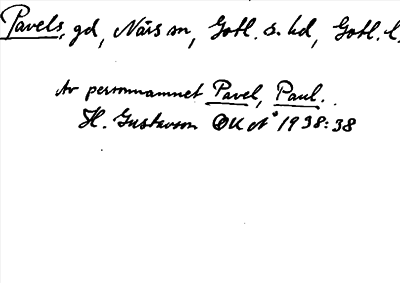 Pavels, gd, När sn, Gotl. s. hd, Gotl. l.
Av personnamnet Pavel, Paul.
H. Gustavson OUÅ 1938:38